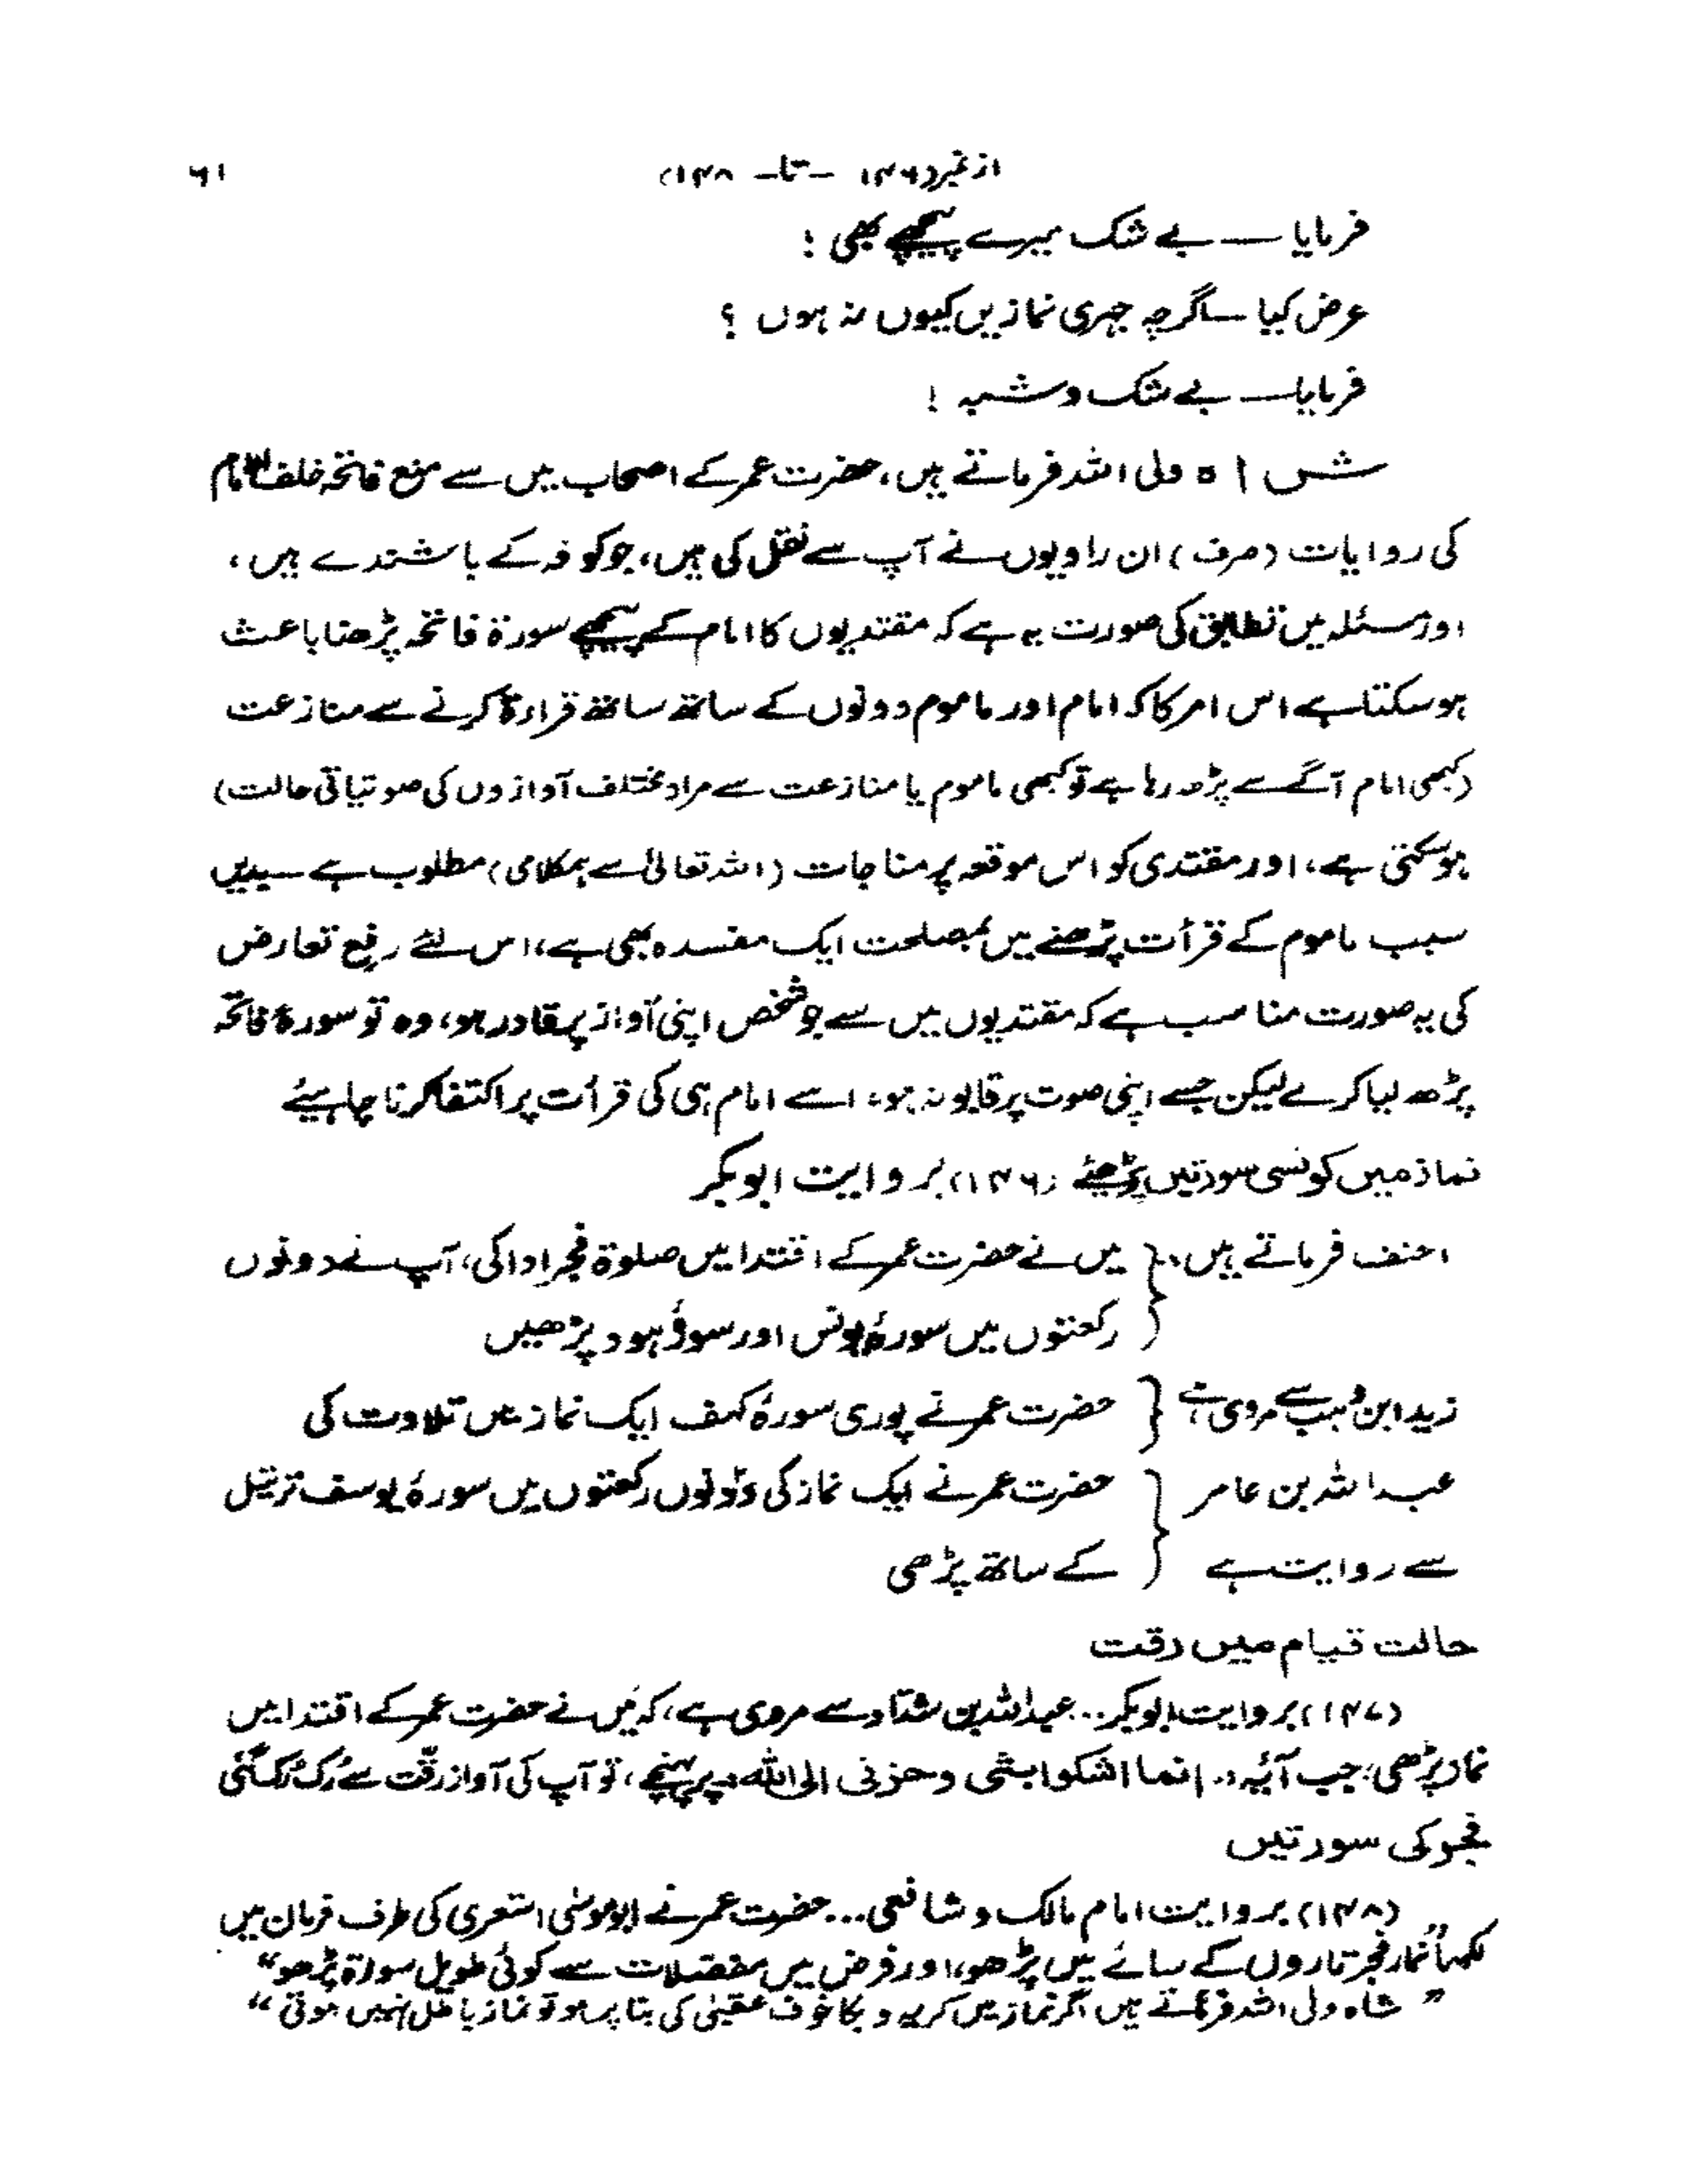 از نمبر (۱۴۶ — تا — ۱۴۸) ۶۱
فرمایا — بے شک میرے پیچھے بھی !
عرض کیا — اگرچہ جہری نمازیں کیوں نہ ہوں ؟
فرمایا — بے شک و شبہ !
شاہ ولی اللہ فرماتے ہیں، حضرت عمر کے اصحاب میں سے منع فاتحہ خلف الامام
کی روایات (صرف) ان راویوں نے آپ سے نقل کی ہیں، جو کوفہ کے باشندے ہیں،
اور مسئلہ میں تطابق کی صورت یہ ہے کہ مقتدیوں کا امام کے پیچھے سورۃ فاتحہ پڑھنا باعث
ہو سکتا ہے اس امر کا کہ امام اور ماموم دونوں کے ساتھ ساتھ قراءۃ کرنے سے منازعت
(کبھی امام آگے سے پڑھ رہا ہے تو کبھی ماموم یا منازعت سے مراد مختلف آوازوں کی صوتیاتی حالت)
ہو سکتی ہے، اور مقتدی کو اس موقعہ پر مناجات (اللہ تعالیٰ سے ہمکلامی) مطلوب ہے — بدیں
سبب ماموم کے قرأت پڑھنے میں بمصلحت ایک مفسدہ بھی ہے، اس لئے رفع تعارض
کی یہ صورت مناسب ہے کہ مقتدیوں میں سے جو شخص اپنی آواز پر قادر ہو، وہ تو سورۂ فاتحہ
پڑھ لیا کرے لیکن جسے اپنی صوت پر قابو نہ ہو، اسے امام ہی کی قرأت پر اکتفا کرنا چاہیئے
نماز میں کونسی سورتیں پڑھئے (۱۴۶) بروایت ابوبکر
احنف فرماتے ہیں:۔ { میں نے حضرت عمر کے اقتدا میں صلوۃ فجر ادا کی، آپ نے دونوں
رکعتوں میں سورۂ یونس اور سورۂ ہود پڑھیں
زید ابن وہب سے مروی ہے { حضرت عمر نے پوری سورۂ کہف ایک نماز میں تلاوت کی
عبداللہ بن عامر { حضرت عمر نے ایک نماز کی دونوں رکعتوں میں سورۂ یوسف ترتیل
سے روایت ہے { کے ساتھ پڑھی
حالت قیام میں رقت
(۱۴۷) بروایت ابوبکر... عبداللہ بن شداد سے مروی ہے، کہ میں نے حضرت عمر کے اقتدا میں
نماز پڑھی، جب آئیہ:۔ انما اشکوا بثی وحزنی الی اللہ پر پہنچے، تو آپ کی آواز رقّت سے رُک رُک گئی
فجر کی سورتیں
(۱۴۸) بروایت امام مالک و شافعی... حضرت عمر نے ابو موسیٰ اشعری کی طرف فرمان میں
لکھا "نماز فجر تاروں کے سائے میں پڑھو، اور فرض میں مفصلات سے کوئی طویل سورۃ پڑھو"
" شاہ ولی اللہ فرماتے ہیں اگر نماز میں گریہ و بکا خوف عقبیٰ کی بنا پر ہو تو نماز باطل نہیں ہوتی "